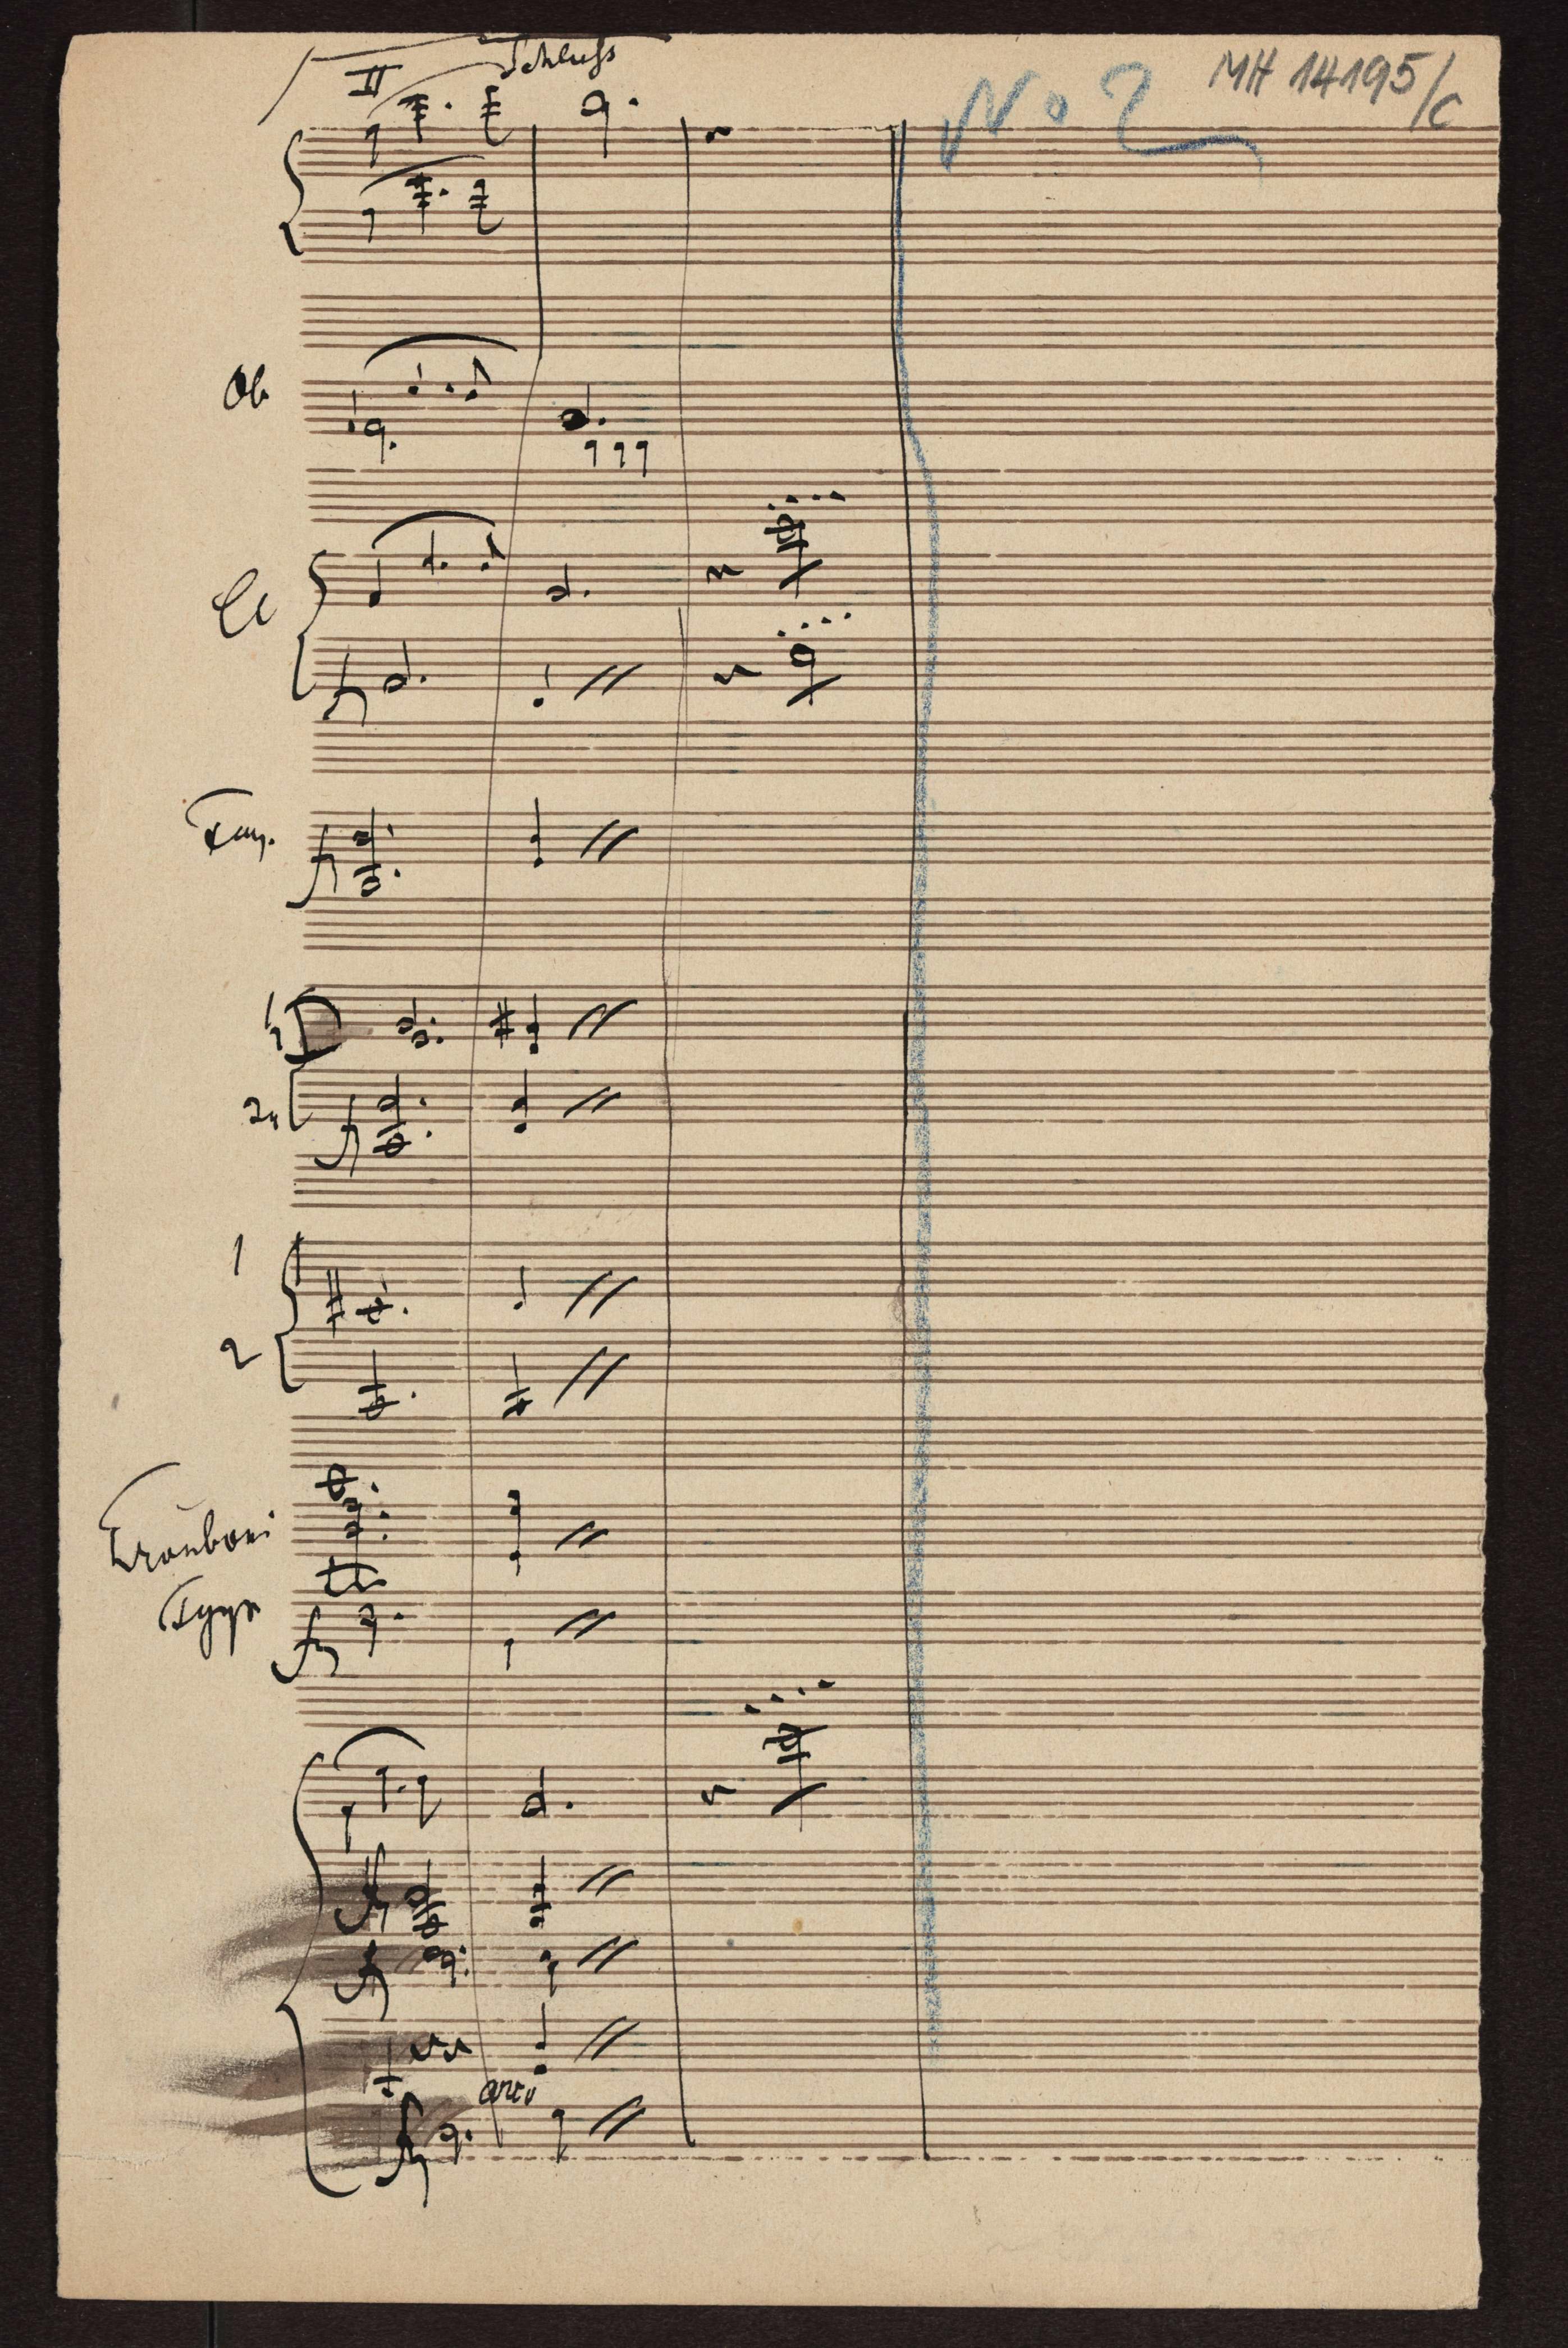 II Schluss
No 2
MH 14195/c
Ob
Cl
Fag.
1
2
1
2
Tromboni
arco